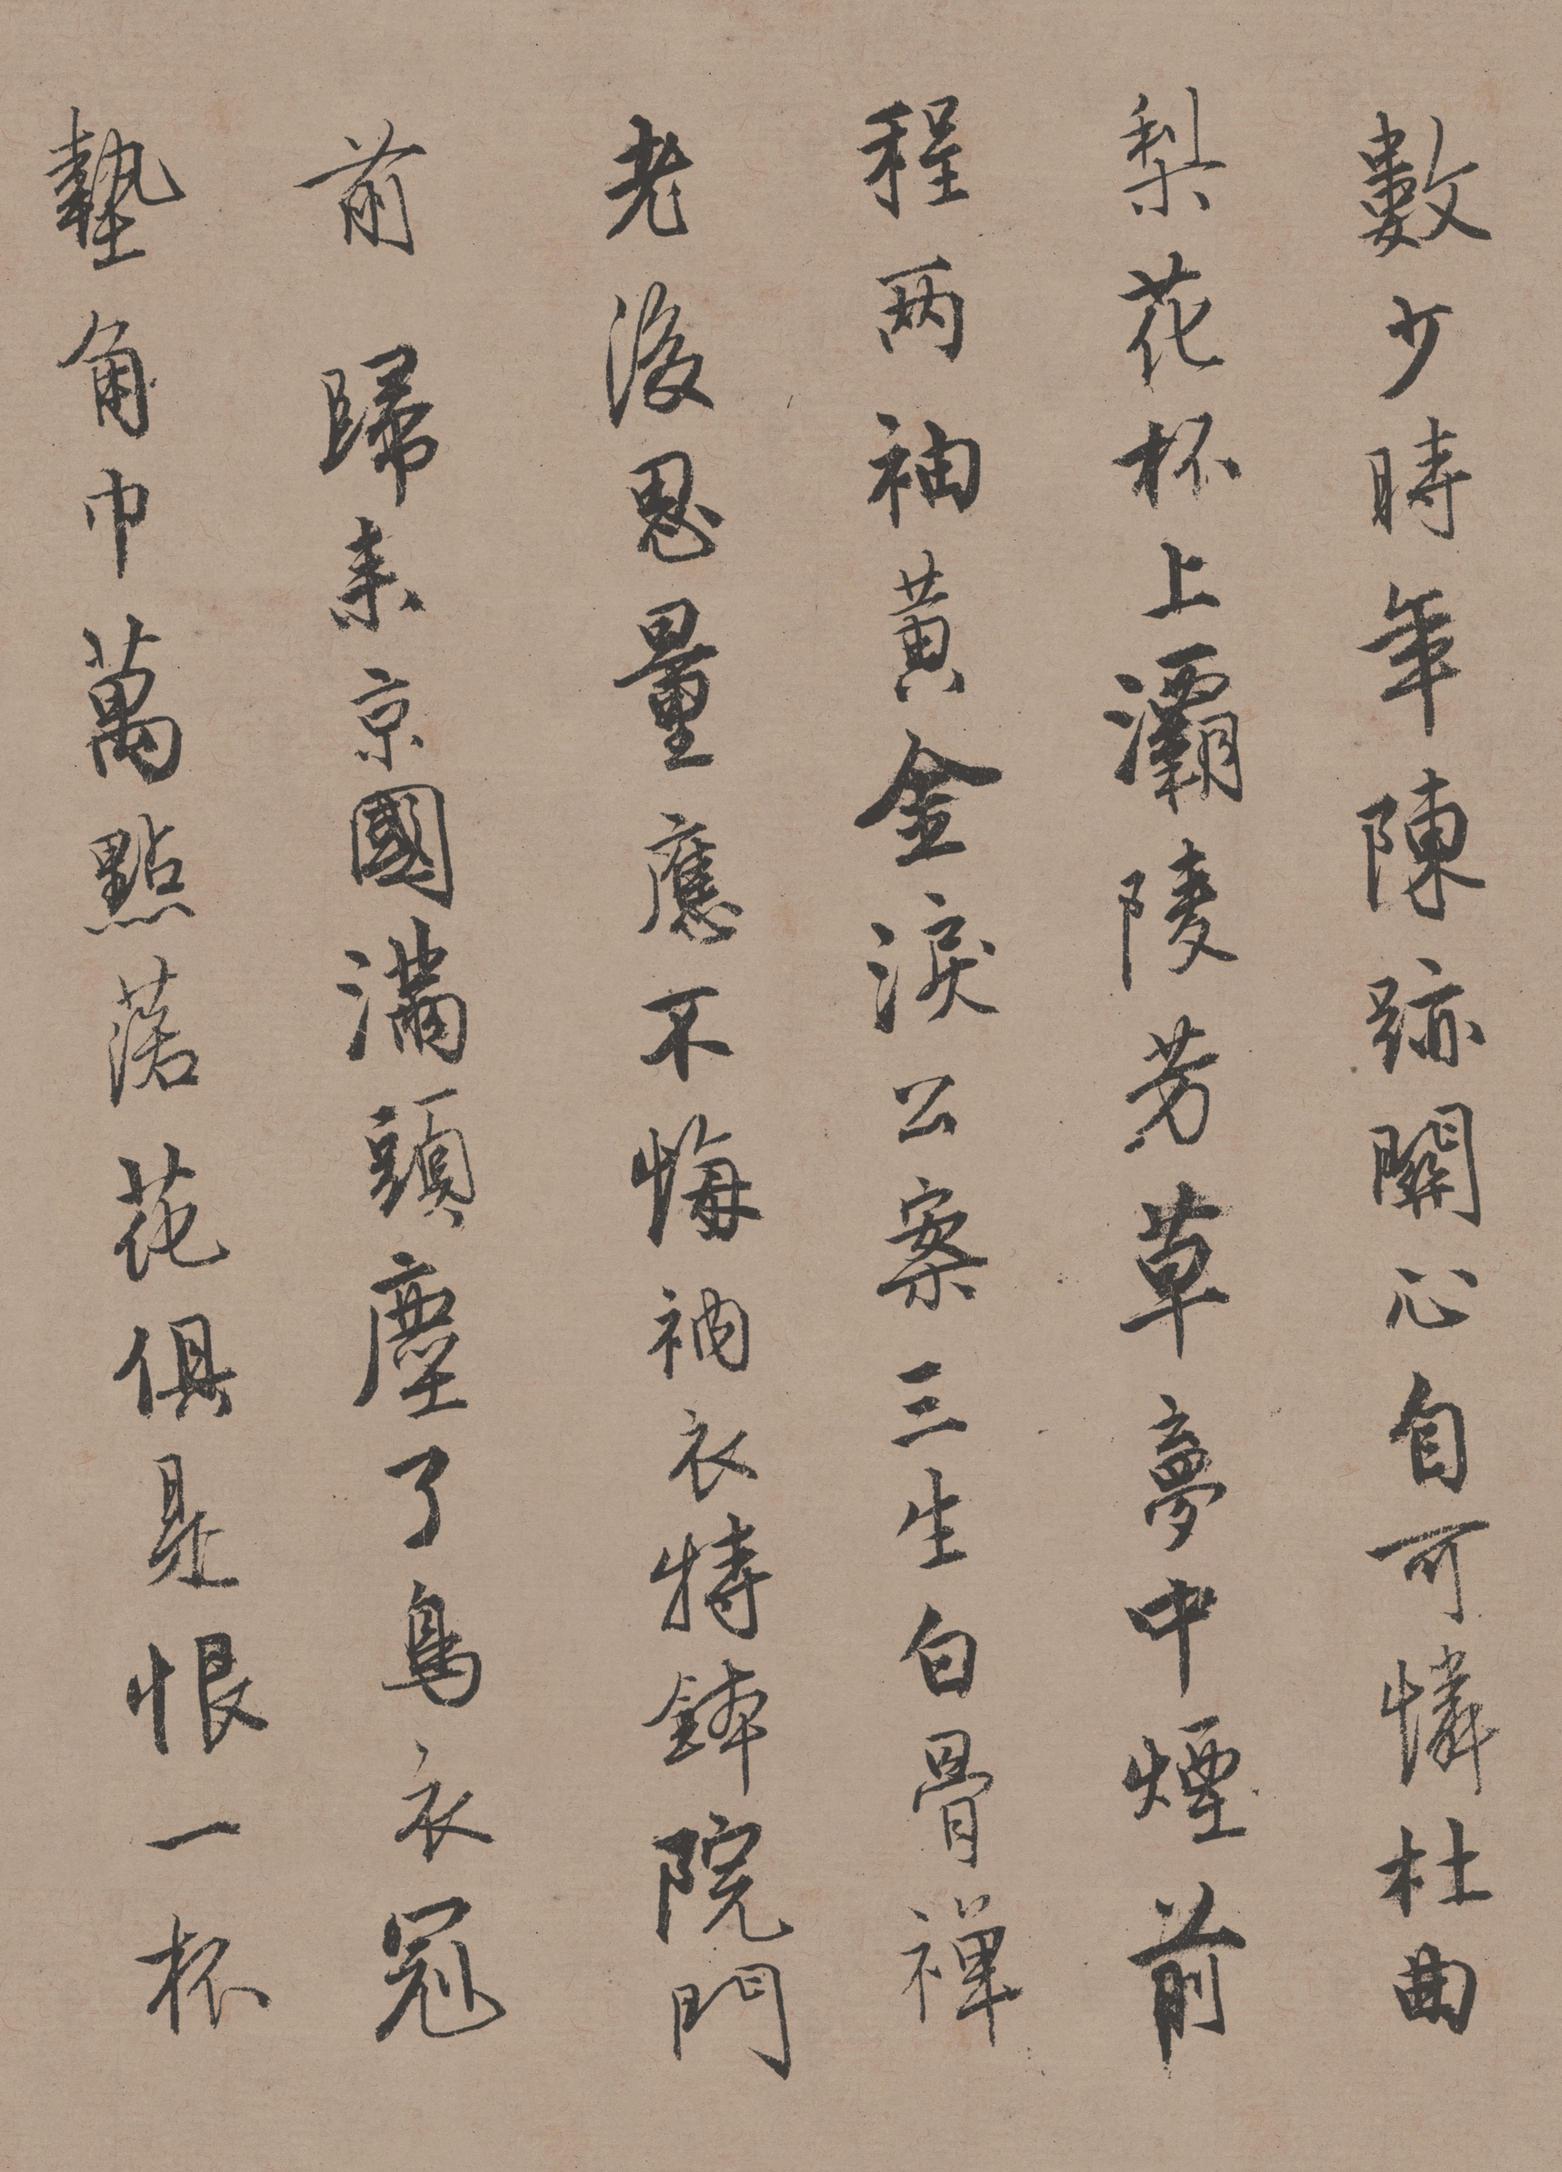 數少時年陳跡關心自可憐杜曲
梨花杯上灞陵芳草夢中煙前
程两袖黃金淚公案三生白骨禪
老後思量應不悔衲衣持鉢院門
前 歸来京國滿頭塵了鳥衣冠
墊角巾萬點落花俱是恨一杯